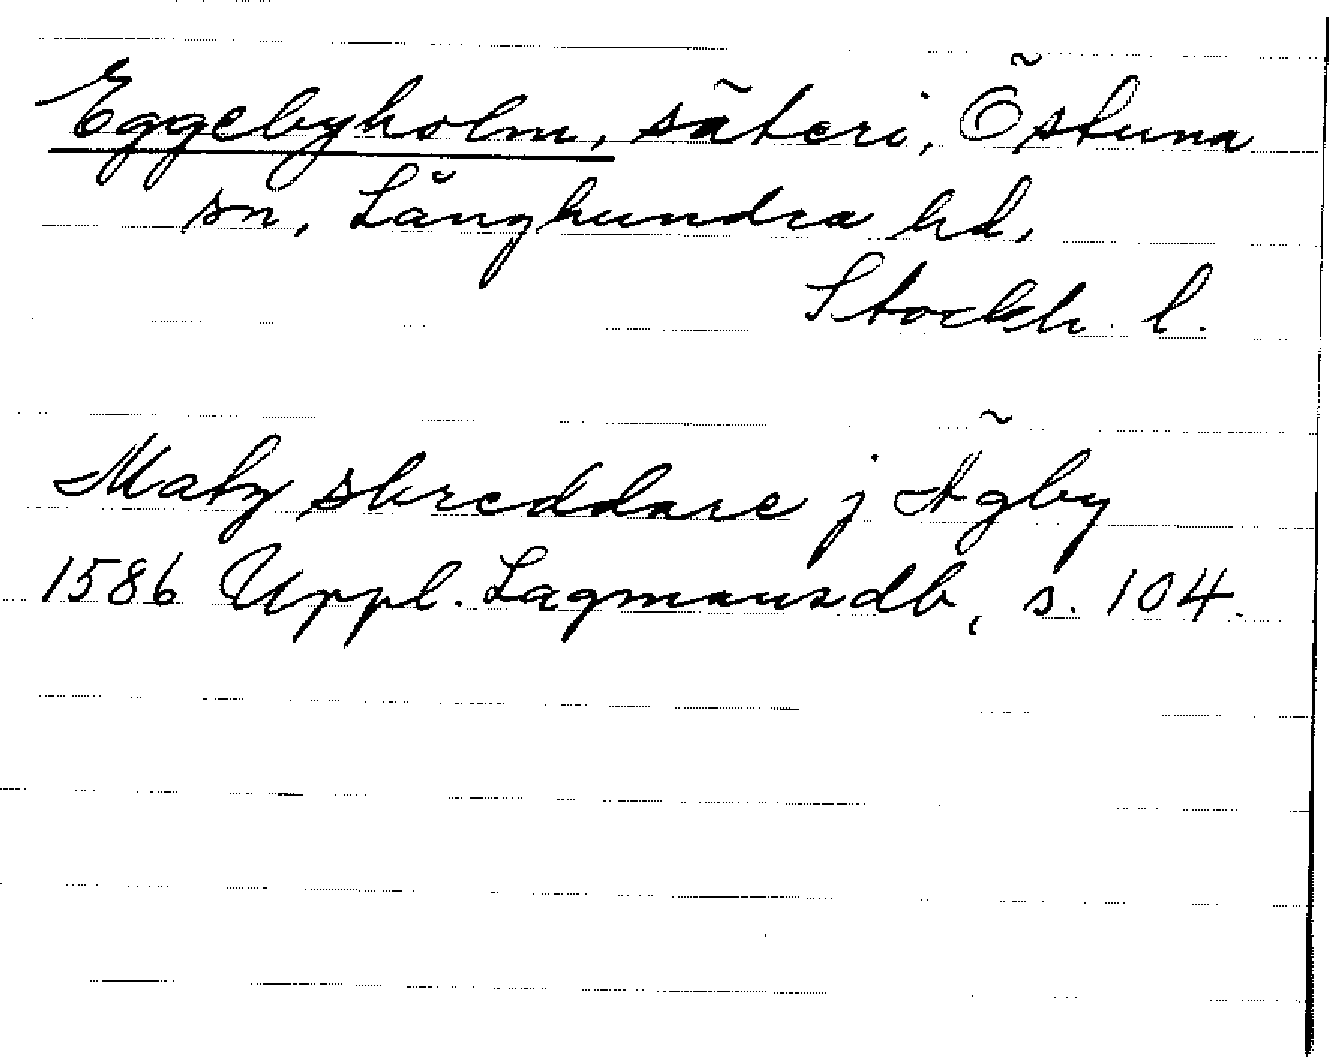 Eggebyholm, säteri, Östuna
sn, Långhundra hd,
Stockh. l.
Maty skreddare j Ägby
1586 Uppl. Lagmansdb, s. 104.